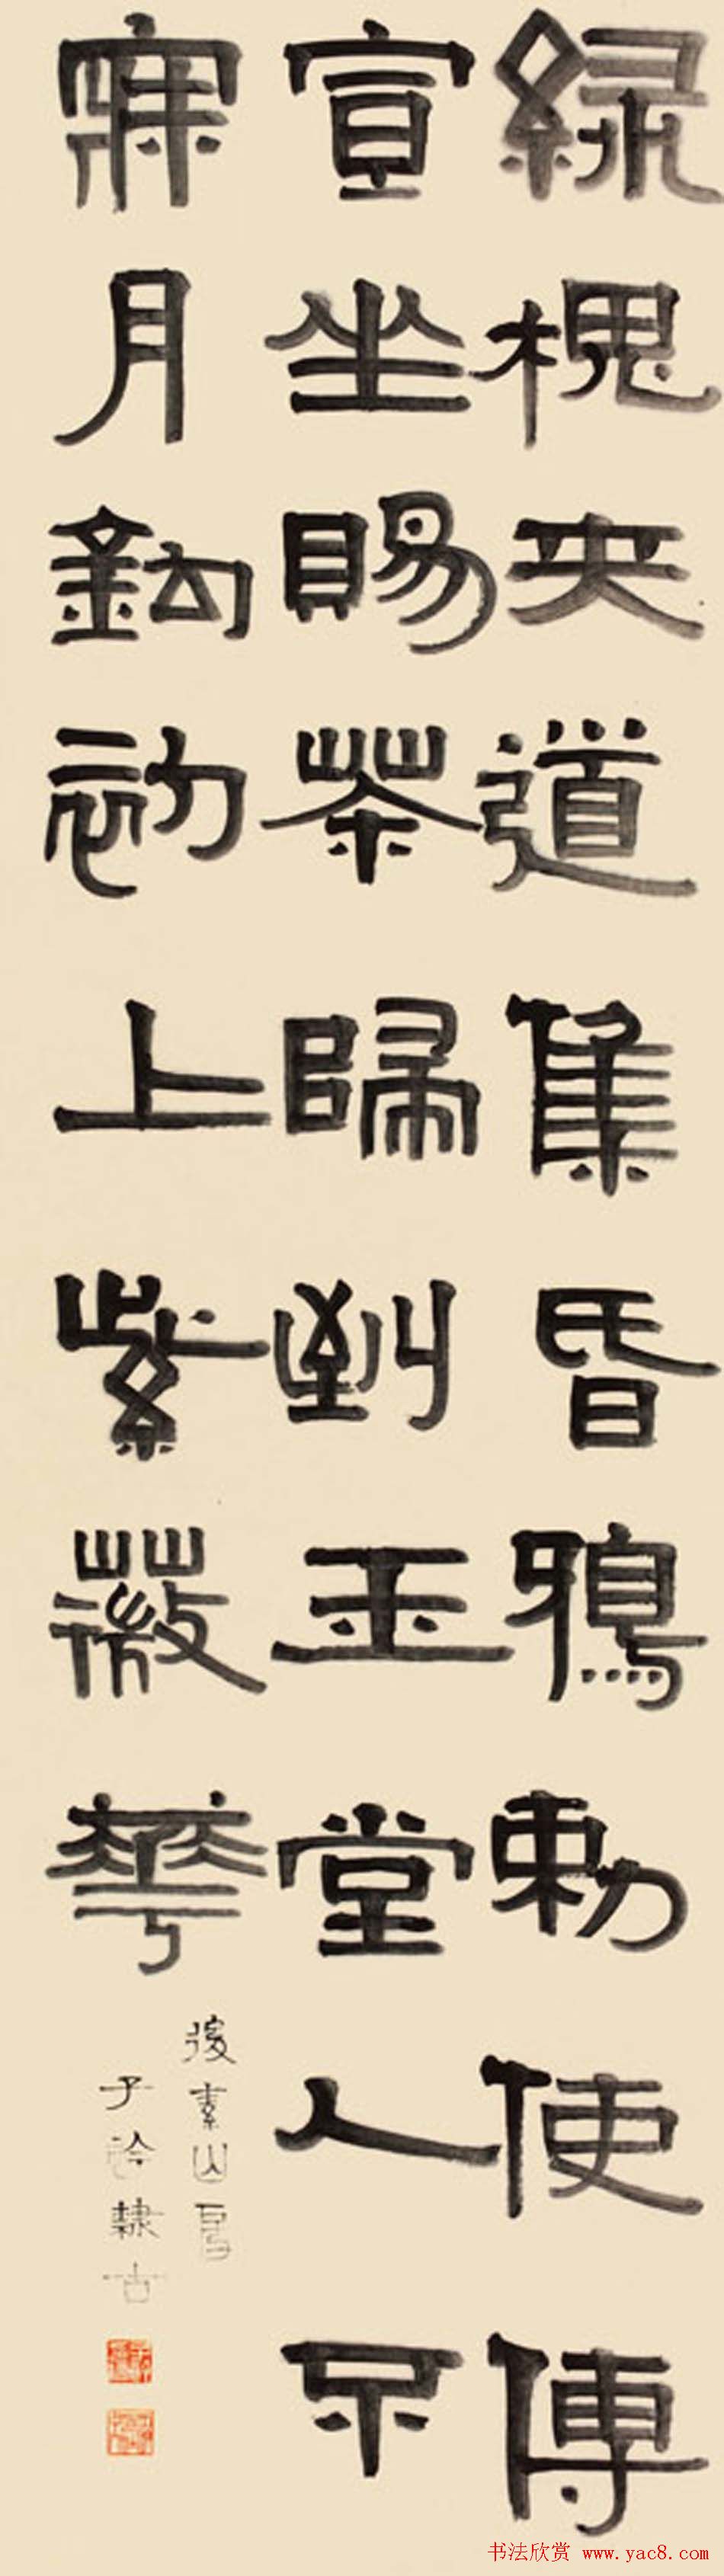 綠槐夾道集昏鴉勅使傳
宣坐賜茶歸到玉堂人不
寐月鉤初上紫薇華
後素山房
子衿隸古
书法欣赏 www.yac8.com